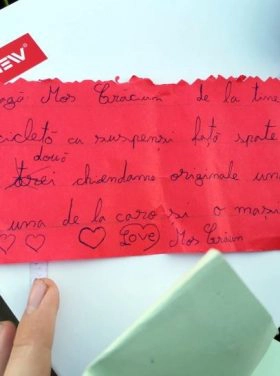 NEW
agă Moș Crăciun de la tine
cicletă cu suspensi față spate
două
trei chiendamă originale un
una de la caro și o mași
Love Moș Crăciun